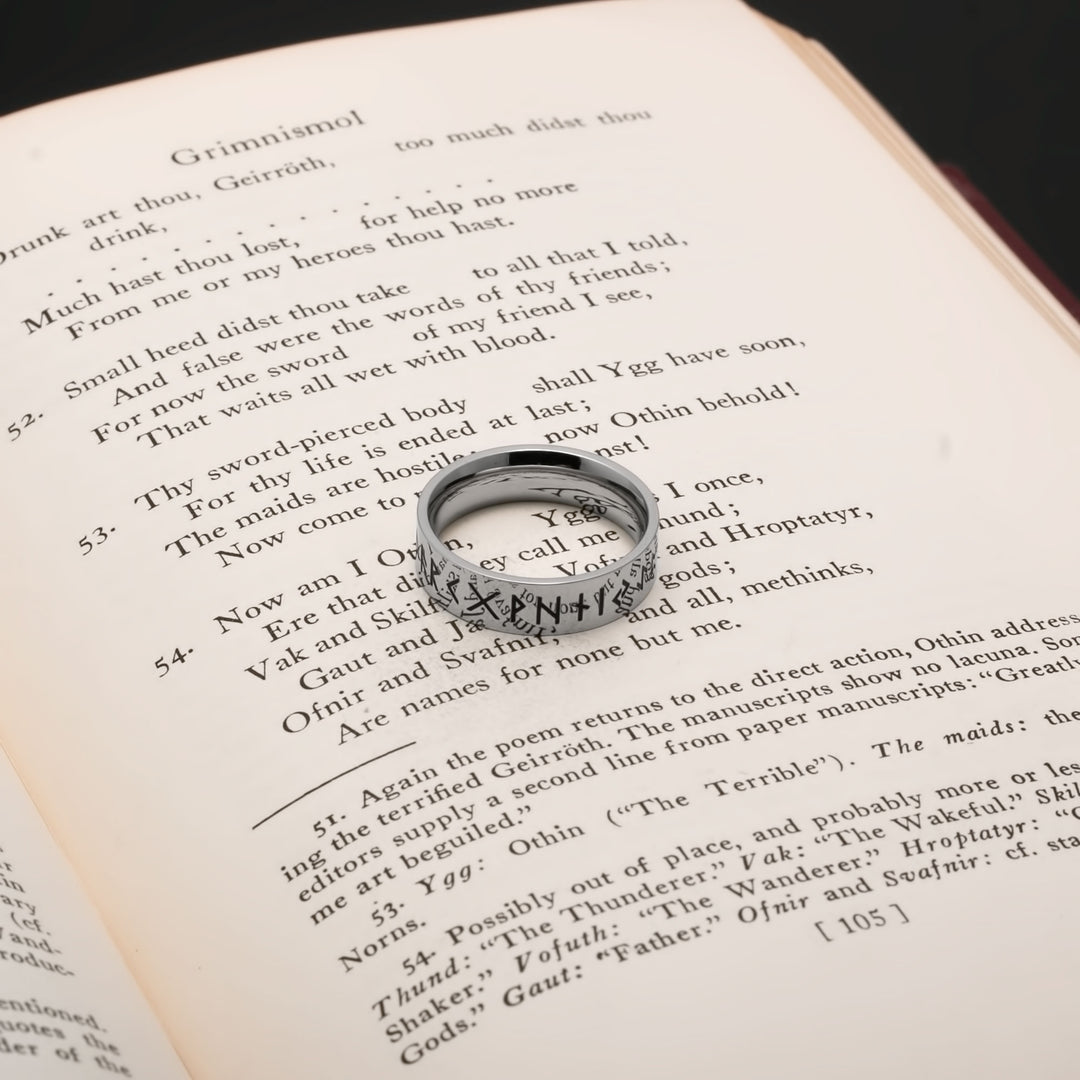 Grimnismol
art thou, Geirröth, too much didst thou
drink,
. . . . . . . . . .
Much hast thou lost, for help no more
From me or my heroes thou hast.
52. Small heed didst thou take to all that I told,
And false were the words of thy friends;
For now the sword of my friend I see,
That waits all wet with blood.
53. Thy sword-pierced body shall Ygg have soon,
For thy life is ended at last;
The maids are hostile; now Othin behold!
Now come to
54. Now am I Ygg I once,
Ere that call me
Vak and and Hroptatyr,
Gaut and gods;
Ofnir and Svafnir, and all, methinks,
Are names for none but me.
ᚲᚷᚹᚺᚾᛁᛃ
51. Again the poem returns to the direct action, Othin address-
ing the terrified Geirröth. The manuscripts show no lacuna.
editors supply a second line from paper manuscripts: “Greatly
me art beguiled.”
53. Ygg: Othin (“The Terrible”). The maids: the
Norns.
54. Possibly out of place, and probably more or
Thund: “The Thunderer.” Vak: “The Wakeful.”
Shaker.” Vofuth: “The Wanderer.” Hroptatyr:
Gods.” Gaut: “Father.” Ofnir and Svafnir: cf.
[ 105 ]
(cf.
the
of the